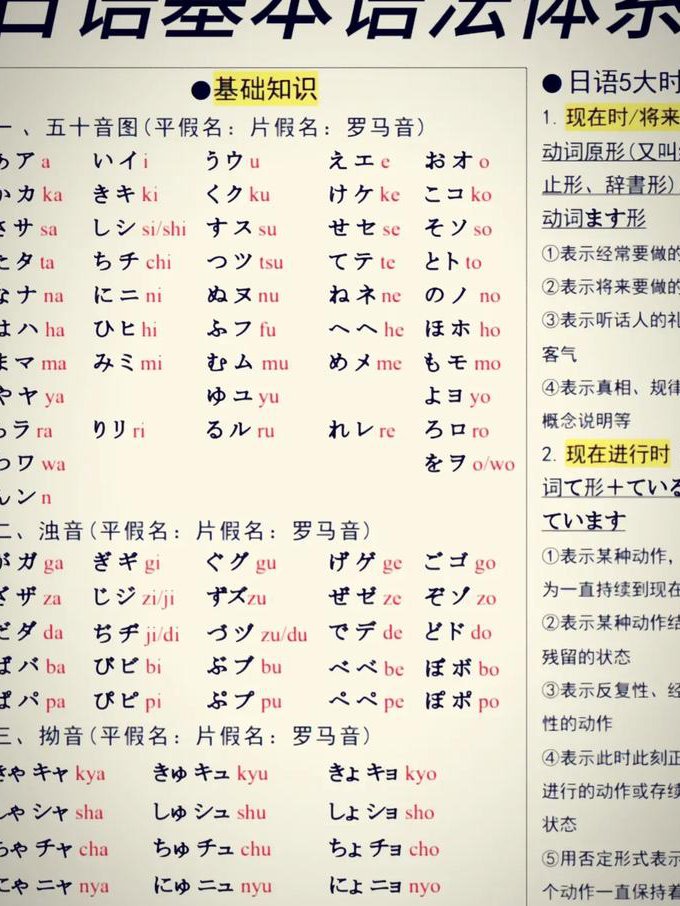 日语基本语法体系
●基础知识
一、五十音图(平假名：片假名：罗马音)
あア a いイ i うウ u えエ e おオ o
かカ ka きキ ki くク ku けケ ke こコ ko
さサ sa しシ si/shi すス su せセ se そソ so
たタ ta ちチ chi つツ tsu てテ te とト to
なナ na にニ ni ぬヌ nu ねネ ne のノ no
はハ ha ひヒ hi ふフ fu へヘ he ほホ ho
まマ ma みミ mi むム mu めメ me もモ mo
やヤ ya ゆユ yu よヨ yo
らラ ra りリ ri るル ru れレ re ろロ ro
わワ wa をヲ o/wo
んン n
二、浊音(平假名：片假名：罗马音)
がガ ga ぎギ gi ぐグ gu げゲ ge ごゴ go
ざザ za じジ zi/ji ずズ zu ぜゼ ze ぞゾ zo
だダ da ぢヂ ji/di づヅ zu/du でデ de どド do
ばバ ba びビ bi ぶブ bu べベ be ぼボ bo
ぱパ pa ぴピ pi ぷプ pu ぺペ pe ぽポ po
三、拗音(平假名：片假名：罗马音)
きゃ キャ kya きゅ キュ kyu きょ キョ kyo
しゃ シャ sha しゅ シュ shu しょ ショ sho
ちゃ チャ cha ちゅ チュ chu ちょ チョ cho
にゃ ニャ nya にゅ ニュ nyu にょ ニョ nyo
●日语5大时
1. 现在时/将来
动词原形(又叫
止形、辞書形)
动词ます形
①表示经常要做的
②表示将来要做的
③表示听话人的礼
客气
④表示真相、规律
概念说明等
2. 现在进行时
词て形＋ている
ています
①表示某种动作，
为一直持续到现在
②表示某种动作结
残留的状态
③表示反复性、经
性的动作
④表示此时此刻正
进行的动作或存续
状态
⑤用否定形式表示
个动作一直保持着